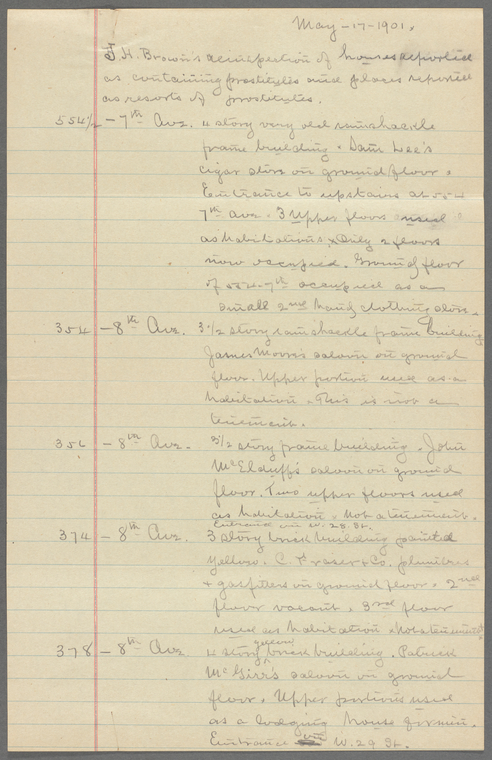 May-17-1901.
J. H. Brown's reinspection of houses reported
as containing prostitutes and places reported
as resorts of prostitutes.
554 1/2 - 7th Ave. 4 story very old ramshackle
frame building. Sam Lee's
cigar store on ground floor.
Entrance to upstairs at 554
7th Ave. 3 Upper floors used
as habitations. Only 2 floors
now occupied. Ground floor
of 554-7th occupied as a
small 2nd hand clothing store.
354 - 8th Ave. 3 1/2 story ramshackle frame building
James Moore's saloon on ground
floor. Upper portion used as a
habitation. This is not a
tenement.
356 - 8th Ave. 3 1/2 story frame building. John
saloon on ground
floor. Two upper floors used
as habitation. Not a tenement.
Entrance on W. 28. St.
374 - 8th Ave. 3 story brick building painted
yellow. C. Fraser & Co. plumbers
+ gasfitters on ground floor. 2nd
floor vacant. 3rd floor
used as habitation. Not a tenement
378 - 8th Ave. 4 story yellow brick building. Patrick
McGirr's saloon on ground
floor. Upper portions used
as a lodging house for men.
Entrance on W. 29 St.